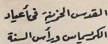 القدس الحزينة في أعياد
الكريسماس ورأس السنة